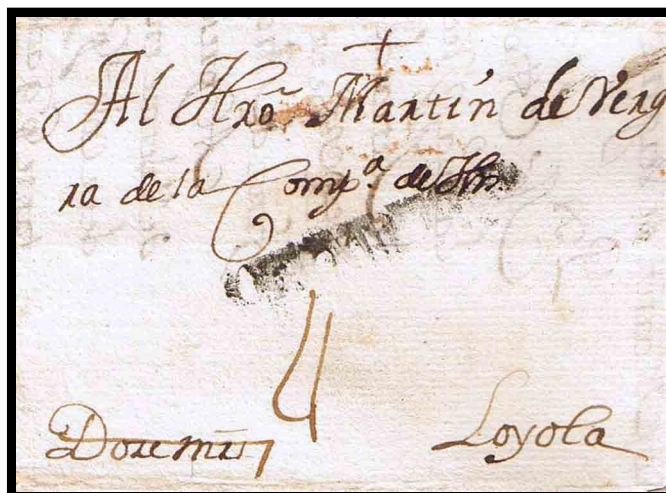 Al Hrō Martin de Verg
ra de la Comp.ª de Jhs
4
Loyola